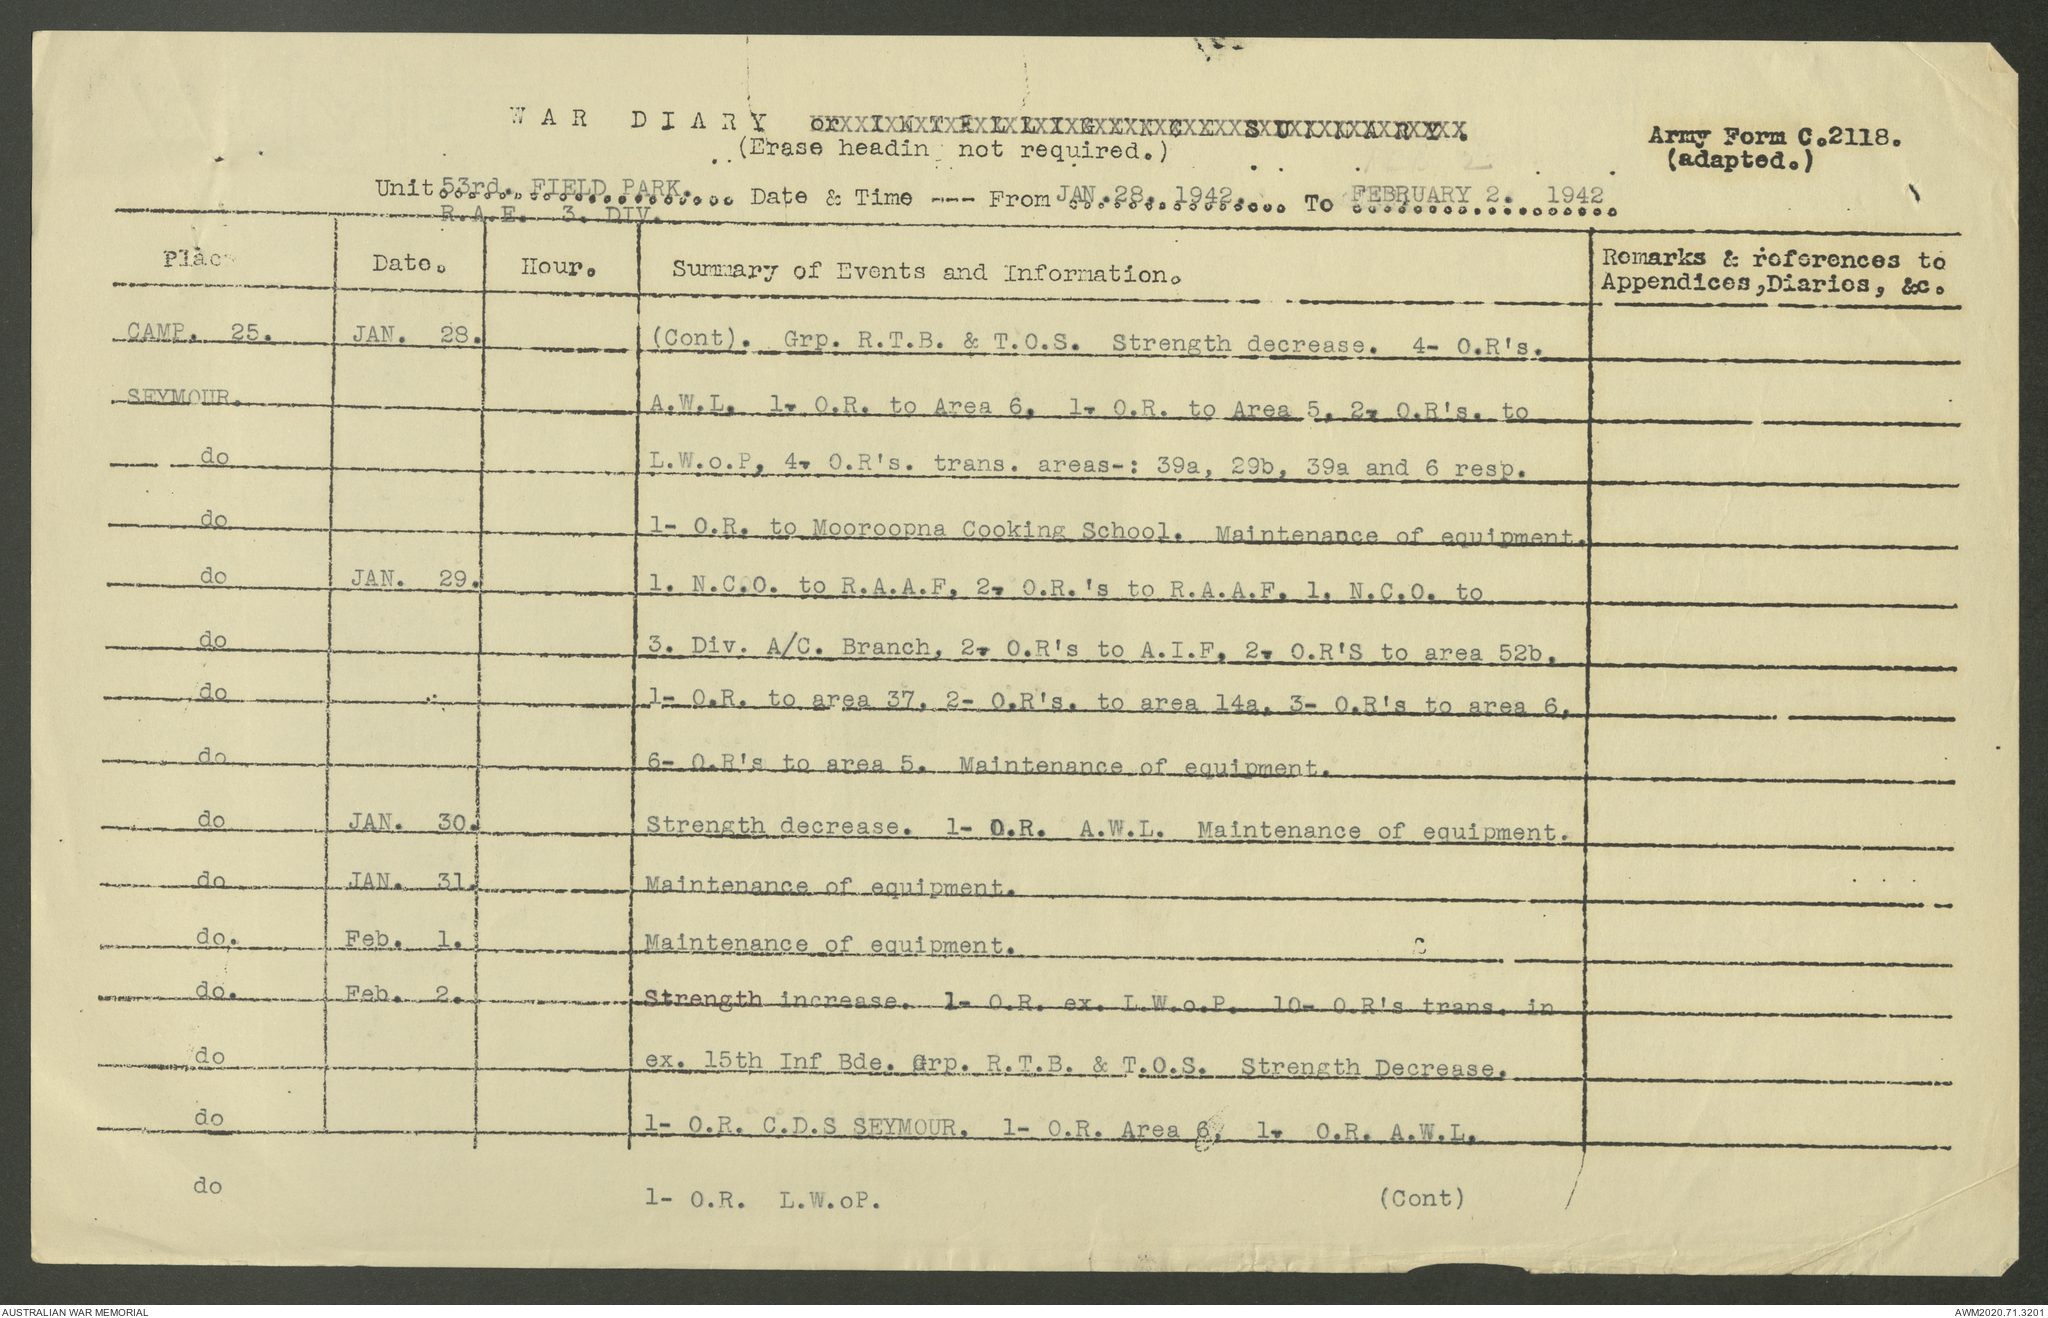 WAR DIARY or INTELLIGENCE SUMMARY.
(Erase headin not required.)
Army Form C.2118.
(adapted.)
Unit 53rd. FIELD PARK. Date & Time --- From JAN. 28. 1942. To FEBRUARY 2. 1942
R.A.E. 3. DIV.
Place Date. Hour. Summary of Events and Information. Remarks & references to
Appendices, Diaries, &c.
CAMP. 25. JAN. 28. (Cont). Grp. R.T.B. & T.O.S. Strength decrease. 4- O.R's.
SEYMOUR. A.W.L. 1- O.R. to Area 6, 1- O.R. to Area 5, 2- O.R's. to
do L.W.o.P, 4- O.R's. trans. areas-: 39a, 29b, 39a and 6 resp.
do 1- O.R. to Mooroopna Cooking School. Maintenance of equipment.
do JAN. 29. 1. N.C.O. to R.A.A.F, 2- O.R.'s to R.A.A.F, 1. N.C.O. to
do 3. Div. A/C. Branch, 2- O.R's to A.I.F, 2- O.R'S to area 52b,
do 1- O.R. to area 37, 2- O.R's. to area 14a, 3- O.R's to area 6,
do 6- O.R's to area 5. Maintenance of equipment.
do JAN. 30. Strength decrease. 1- O.R. A.W.L. Maintenance of equipment.
do JAN. 31. Maintenance of equipment.
do. Feb. 1. Maintenance of equipment.
do. Feb. 2. Strength increase. 1- O.R. ex. L.W.o.P. 10- O.R's trans. in
do ex. 15th Inf Bde. Grp. R.T.B. & T.O.S. Strength Decrease.
do 1- O.R. C.D.S SEYMOUR. 1- O.R. Area 6, 1- O.R. A.W.L.
do 1- O.R. L.W.oP. (Cont)
AUSTRALIAN WAR MEMORIAL AWM2020.71.3201